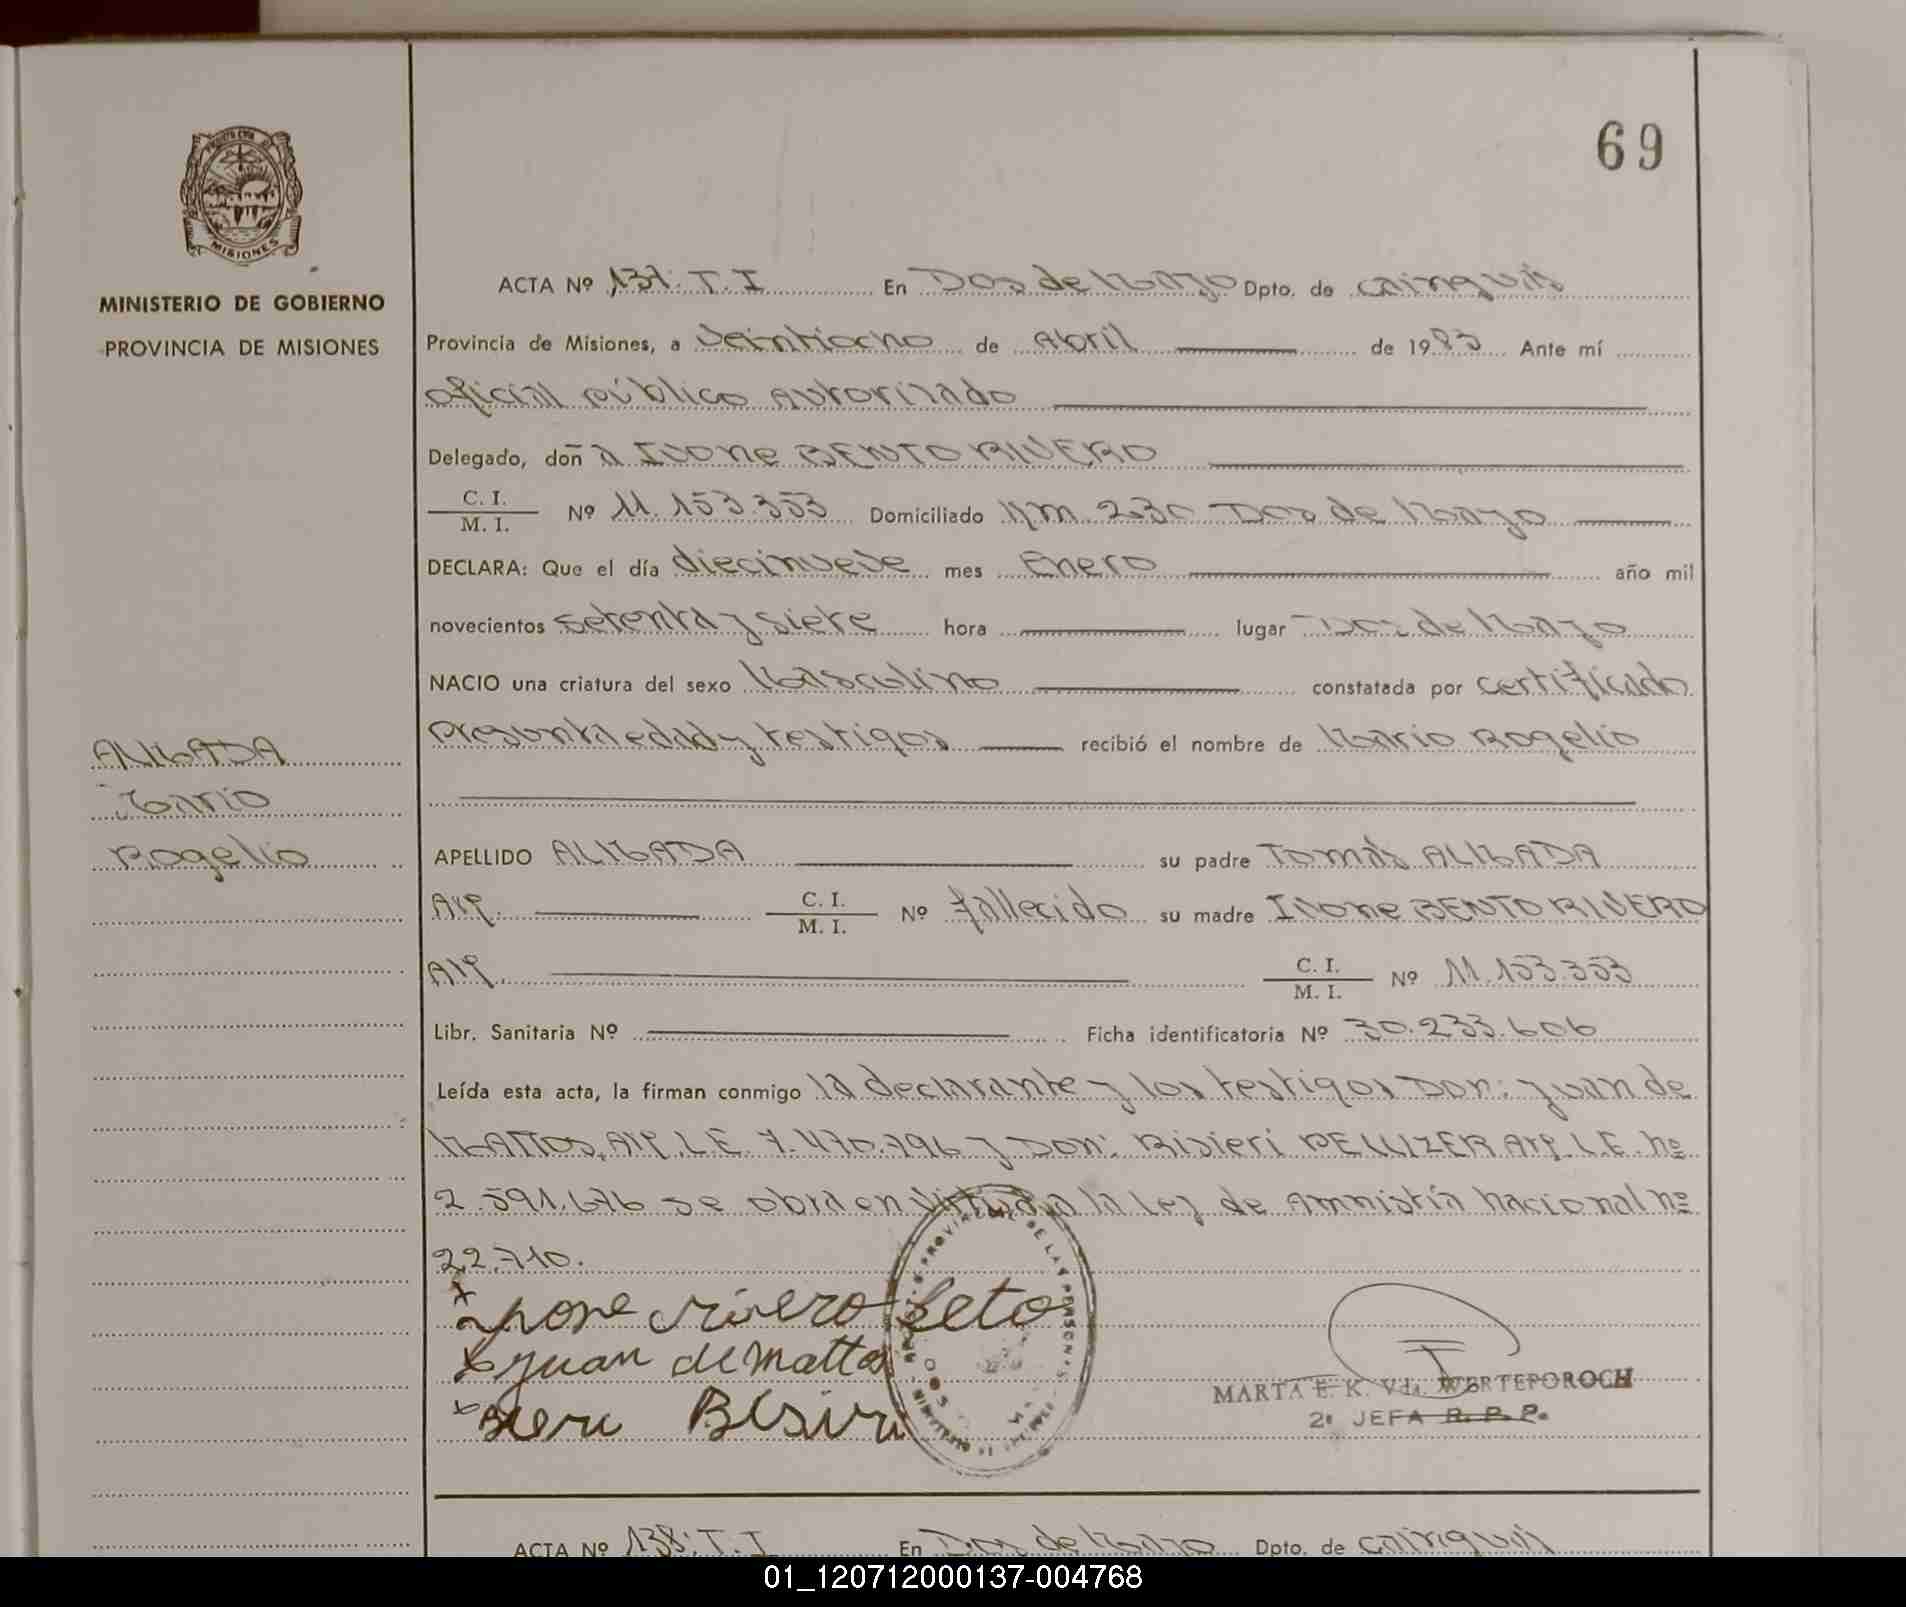 69
MISIONES
MINISTERIO DE GOBIERNO
PROVINCIA DE MISIONES
ALMADA
Mario
Rogelio
ACTA Nº 137. T. I En Dos de Mayo Dpto. de Cainguás
Provincia de Misiones, a Veintiocho de Abril de 1983 Ante mí
oficial público autorizado
Delegado, doñ a Ivone BENTO RIVERO
C. I. / M. I. Nº 11.153.353 Domiciliado Km. 230 Dos de Mayo
DECLARA: Que el día diecinueve mes Enero año mil
novecientos setenta y siete hora lugar Dos de Mayo
NACIO una criatura del sexo Masculino constatada por certificado
presunta edad y testigos recibió el nombre de Mario Rogelio
APELLIDO ALMADA su padre Tomás ALMADA
Arg. C. I. / M. I. Nº fallecido su madre Ivone BENTO RIVERO
Arg. C. I. / M. I. Nº 11.153.353
Libr. Sanitaria Nº Ficha identificatoria Nº 30.233.606
Leída esta acta, la firman conmigo la declarante y los testigos Don: Juan de
MATTOS, Arg. L.E. 7.470.796 y Don: Bisieri PELLIZER Arg. L.E. nº
2.591.676 se obra en virtud a la Ley de Amnistía Nacional nº
22.710.
x Ivone rivero Beto
x Juan de Mattos
x Bisiri
MARTA E. K. Vda. WERTEPOROCH
2ª JEFA R. P. P.
ACTA Nº 138. T. I En Dos de Mayo Dpto. de Cainguás
01_120712000137-004768